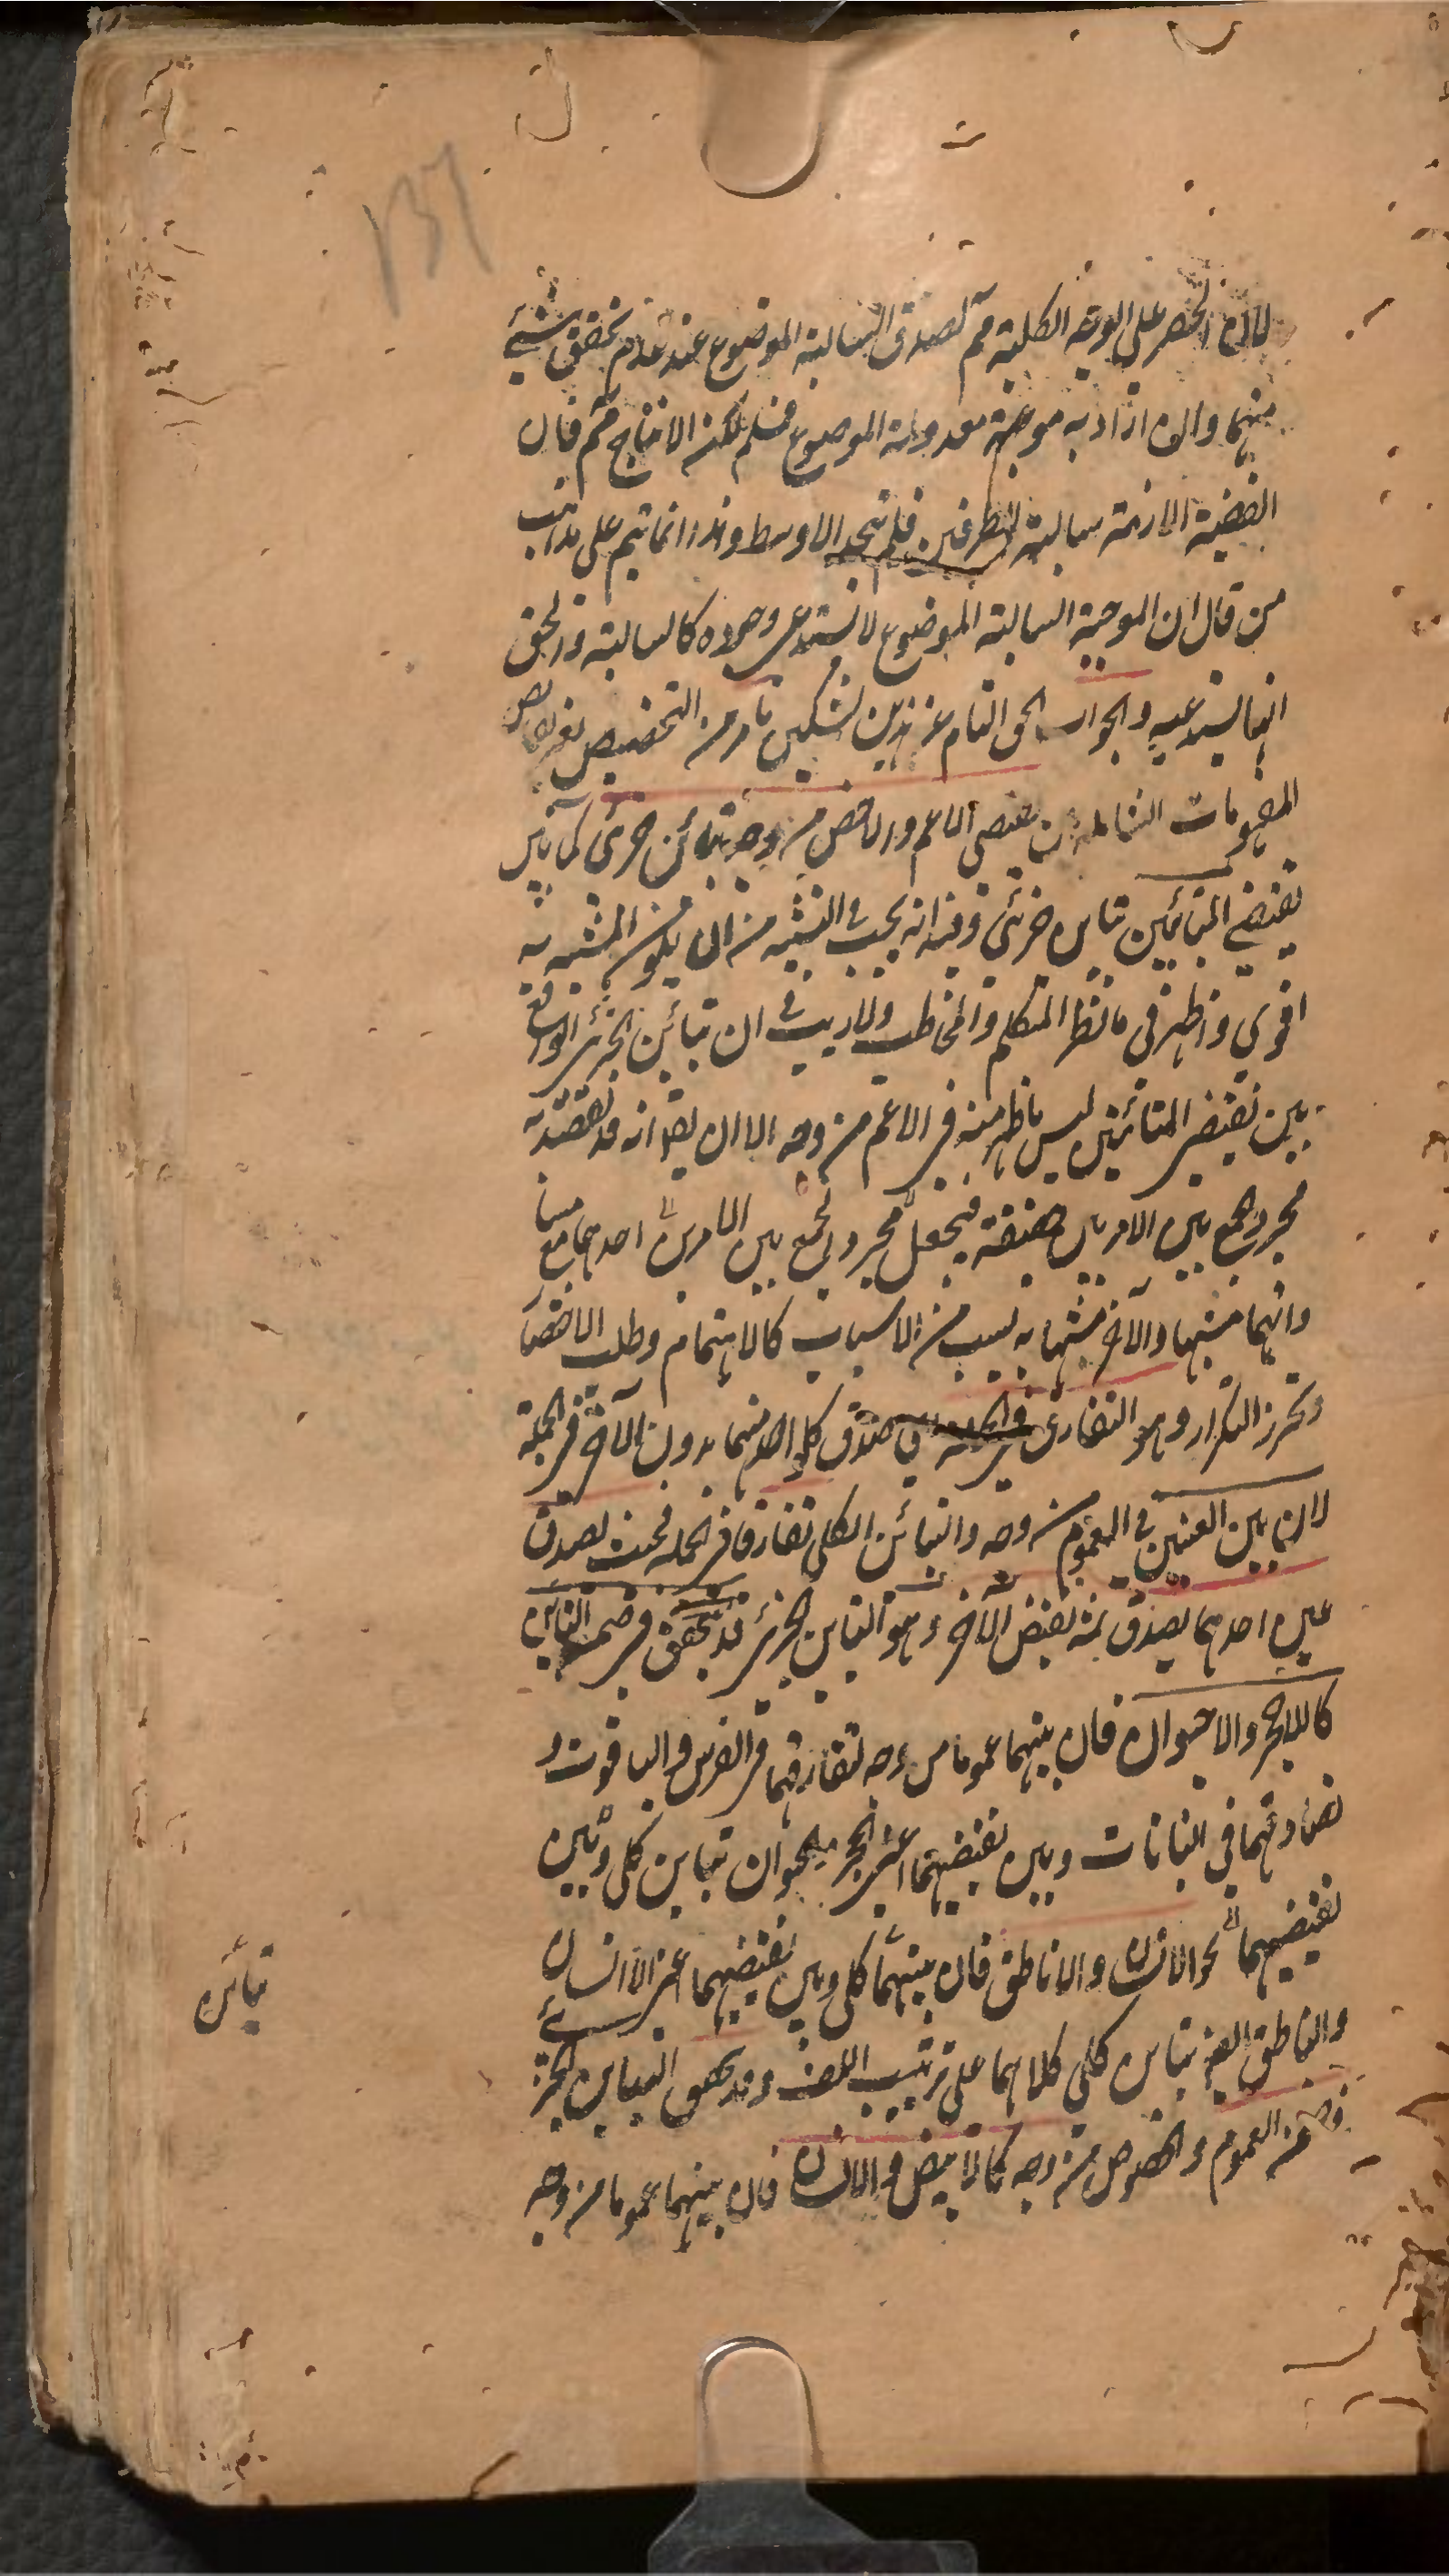 ١٣٦
لان الحصر على الوجه الكلية مم لصدق السالبة الموضوع عند عدم تحقق شيئ
منهما وان اراد به موجبة معدولة الموضوع فمسلم لكن الانتاج مم فان
القضية اللازمة سالبة الطرفين فلم يتحد الاوسط وهذا انما يتم على مذهب
من قال ان الموجبة السالبة الموضوع لا تستدعى وجوده كالسالبة والحق
انها يستدعيه والجواب الحق التام عن هذين الشكين ما مر من التخصيص بغير نقايض
المفهومات الشاملة بين نقيضى الاعم والاخص من وجه تباين جزئى كما بين
نقيضى المتباينين تباين جزئى وفيه انه يجب فى التشبيه من ان يكون المشبه به
اقوى واظهر فى ما نظر المتكلم والمخاطب ولا ريب فى ان تباين الجزئى الواقع
بين نقيضى المتباينين ليس باظهر منه فى الاعم من وجه الا ان يقال انه قد يقصد به
مجرد الجمع بين الامرين حقيقة فيجعل مجرد الجمع بين الامرين احدهما مع
وايهما مشبها والآخر مشبها به لسبب من الاسباب كالاهتمام وطلب الاختصار
وتحرز التكرار وهو التفارق فى صدق كل واحد منهما بدون الآخر فى الجملة
لان بين العينين فى العموم من وجه والتباين الكلى تفارقا فى الجملة فحيث يصدق
عين احدهما يصدق ثمه نقيض الآخر وهو التباين الجزئى قد يتحقق فى ضمن التباين
كاللاحجر والاحيوان فان بينهما عموما من وجه لتفارقهما فى الفرس والياقوت و
تصادقهما فى النباتات وبين نقيضيهما اعنى الحجر والحيوان تباين كلى وبين
نقيضيهما نحو الانسان واللاناطق فان بينهما كلى وبين نقيضيهما اعنى اللاانسان
والناطق ايضا تباين كلى كلاهما على ترتيب اللف وقد يتحقق التباين الجزئى
فى ضمن العموم والخصوص من وجه كالابيض والانسان فان بينهما عموما من وجه
تباين